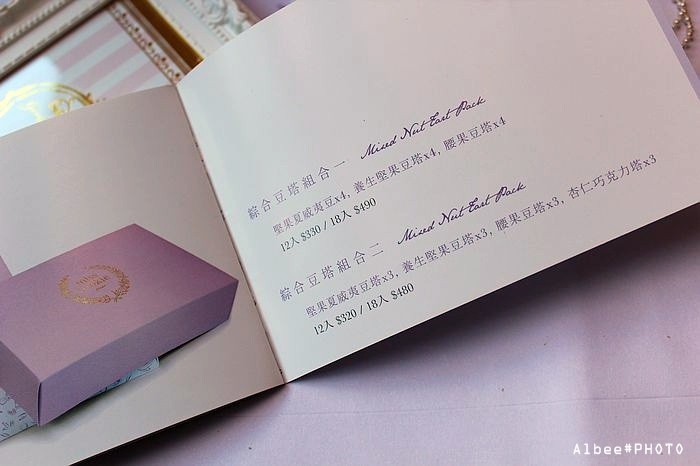 綜合豆塔組合一 Mixed Nut Tart Pack
堅果夏威夷豆x4, 養生堅果豆塔x4, 腰果豆塔x4
12入 $330 / 18入 $490
綜合豆塔組合二 Mixed Nut Tart Pack
堅果夏威夷豆塔x3, 養生堅果豆塔x3, 腰果豆塔x3, 杏仁巧克力塔x3
12入 $320 / 18入 $480
Albee#PHOTO